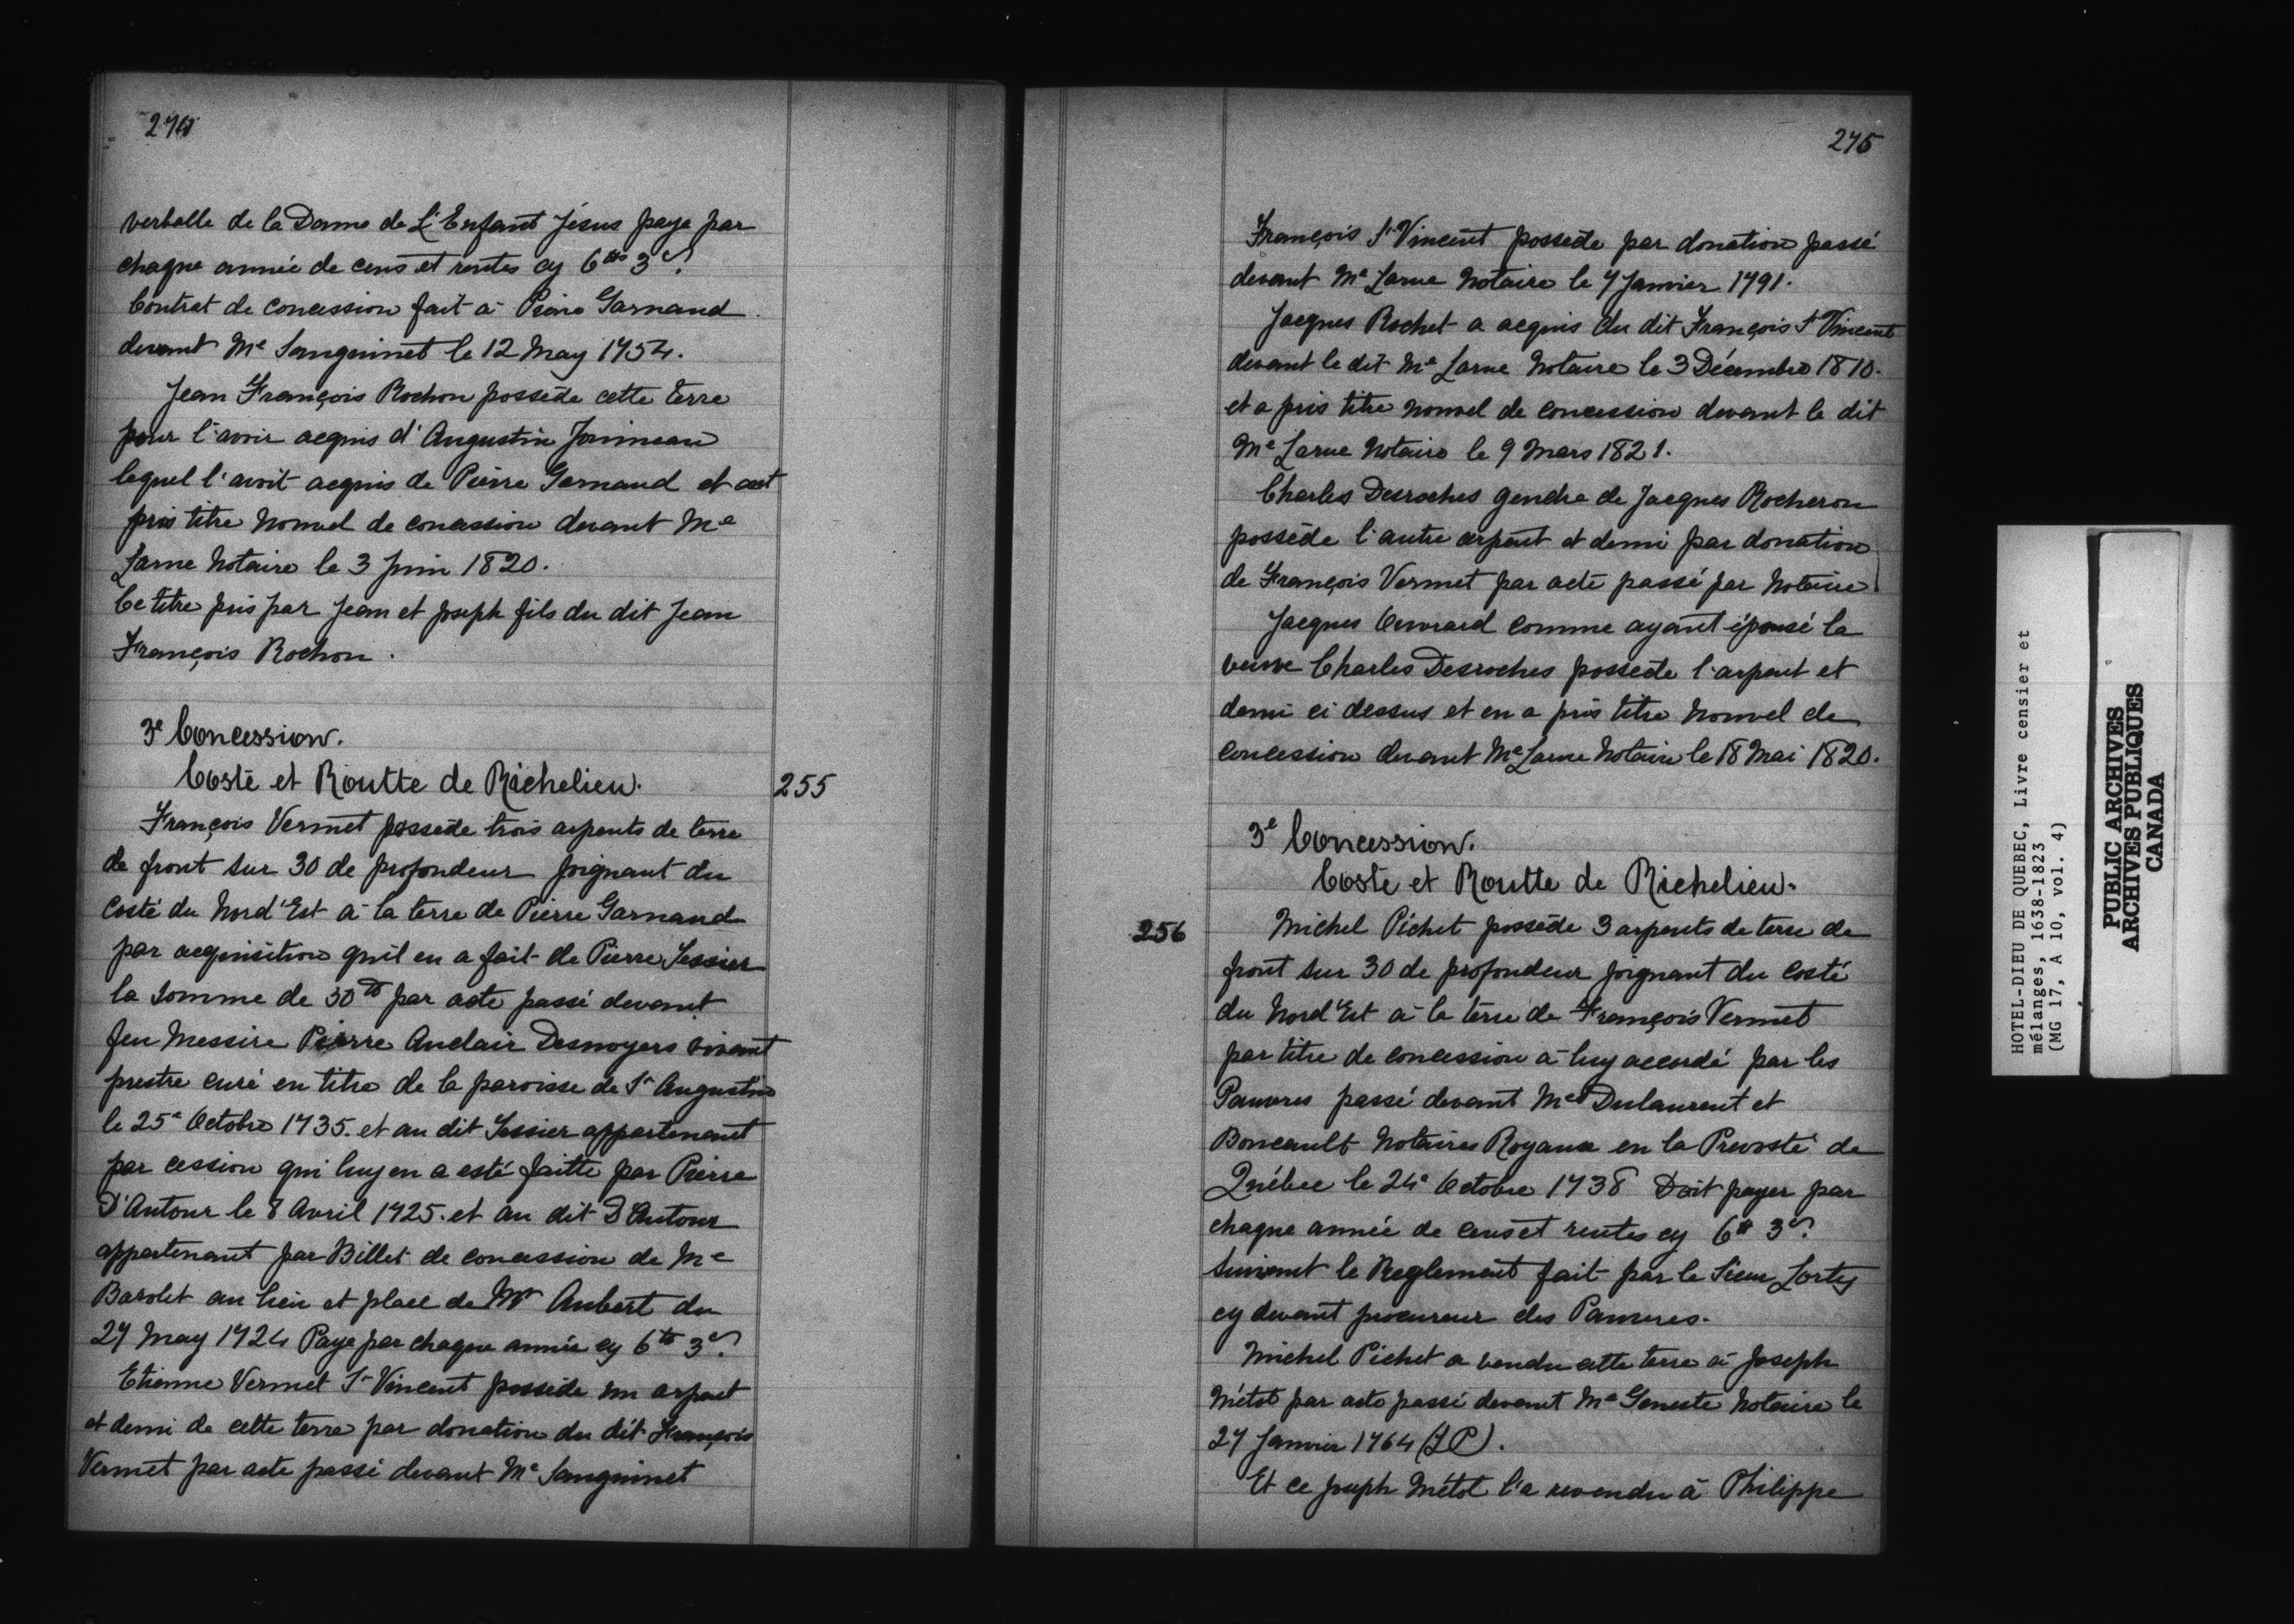 274
verballe de la Dame de L'Enfant Jésus paye par
chaque année de cens et rentes cy 6tt 3s.
Contrat de concession fait à Pierre Garnaud
devant Me Sanguinet le 12 May 1754.
Jean François Rochon possède cette terre
pour l'avoir acquis d'Augustin Jouineau
lequel l'avoit acquis de Pierre Garnaud et est
pris titre Nouvel de concession devant Me
Larue Notaire le 3 Juin 1820.
Ce titre pris par Jean et Joseph fils du dit Jean
François Rochon.
3e Concession.
Costé et Routte de Richelieu.
255
François Vermet possede trois arpents de terre
de front sur 30 de profondeur joignant du
Costé du Nord'Est à la terre de Pierre Garnaud
par acquisition qu'il en a fait de Pierre Tessier
la somme de 30tt par acte passé devant
feu Messire Pierre Auclair Desnoyers vivant
prestre curé en titre de la paroisse de St Augustin
le 25e Octobre 1735. et au dit Tessier appartenant
par cession qui luy en a esté faitte par Pierre
D'Autour le 8 Avril 1725. et au dit D'Autour
appartenant par Billet de concession de Me
Barolet au lieu et place de Mr Aubert du
27 May 1724 Paye par chaque année cy 6tt 3s.
Etienne Vermet St Vincent possède un arpent
et demi de cette terre par donation du dit François
Vermet par acte passé devant Me Sanguinet
275
François St Vincent possede par donation passé
devant Me Larue Notaire le 7 Janvier 1791.
Jacques Rochet a acquis du dit François St Vincent
devant le dit Me Larue Notaire le 3 Décembre 1810.
et a pris titre nouvel de concession devant le dit
Me Larue Notaire le 9 Mars 1821.
Charles Desroches gendre de Jacques Rocheron
possède l'autre arpent et demi par donation
de François Vermet par acte passé par Notaire
Jacques Ouvrard comme ayant épousé la
veuve Charles Desroches possede l'arpent et
demi ci dessus et en a pris titre Nouvel de
concession devant Me Larue Notaire le 18 Mai 1820.
3e Concession.
Costé et Routte de Richelieu.
256
Michel Pichet possède 3 arpents de terre de
front sur 30 de profondeur joignant du Costé
du Nord'Est à la terre de François Vermet
par titre de concession à luy accordé par les
Pauvres passé devant Me Dulaurent et
Boucault Notaires Royaux en la Prevosté de
Québec le 24e Octobre 1738 Doit payer par
chaque année de cens et rentes cy 6tt 3s.
Suivant le Reglement fait par le Sieur Lorty
cy devant procureur des Pauvres.
Michel Pichet a vendu cette terre à Joseph
Métot par acte passé devant Me Geneste Notaire le
27 Janvier 1764 (LP).
Et ce Joseph Métot l'a revendu à Philippe
HOTEL-DIEU DE QUEBEC, Livre censier et
mélanges, 1638-1823
(MG 17, A 10, vol. 4)
PUBLIC ARCHIVES
ARCHIVES PUBLIQUES
CANADA